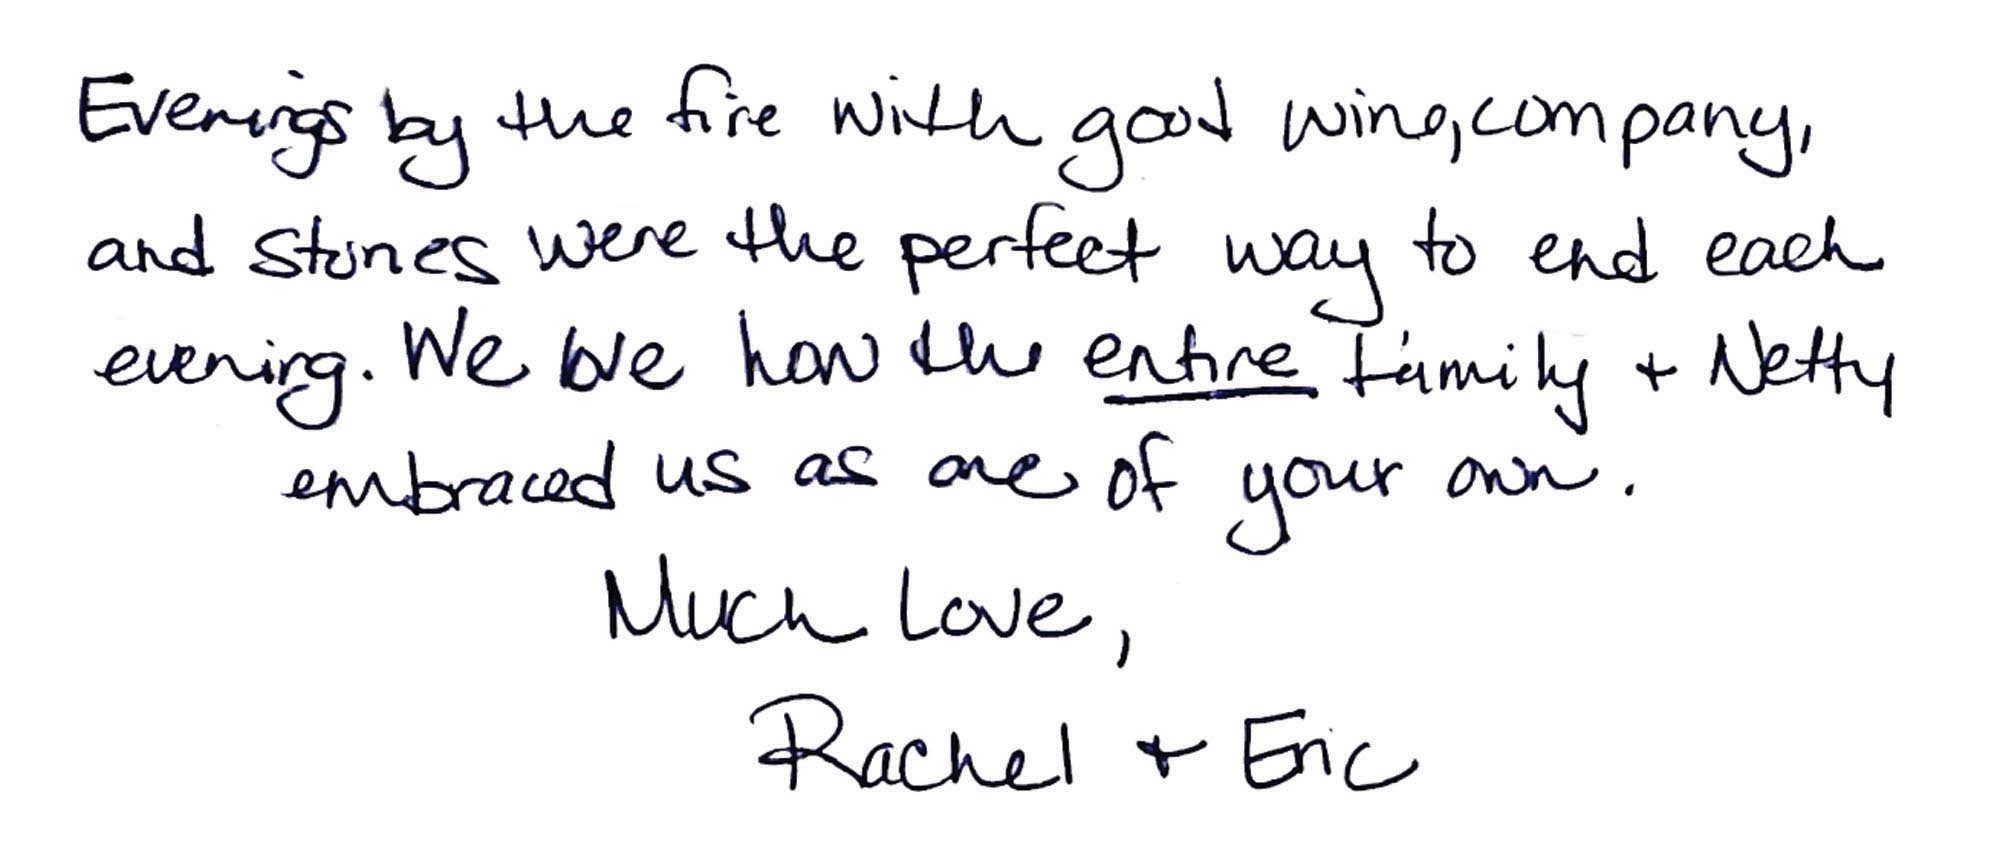 Evenings by the fire with good wine, company,
and stories were the perfect way to end each
evening. We love how the entire family + Netty
embraced us as one of your own.
Much Love,
Rachel + Eric